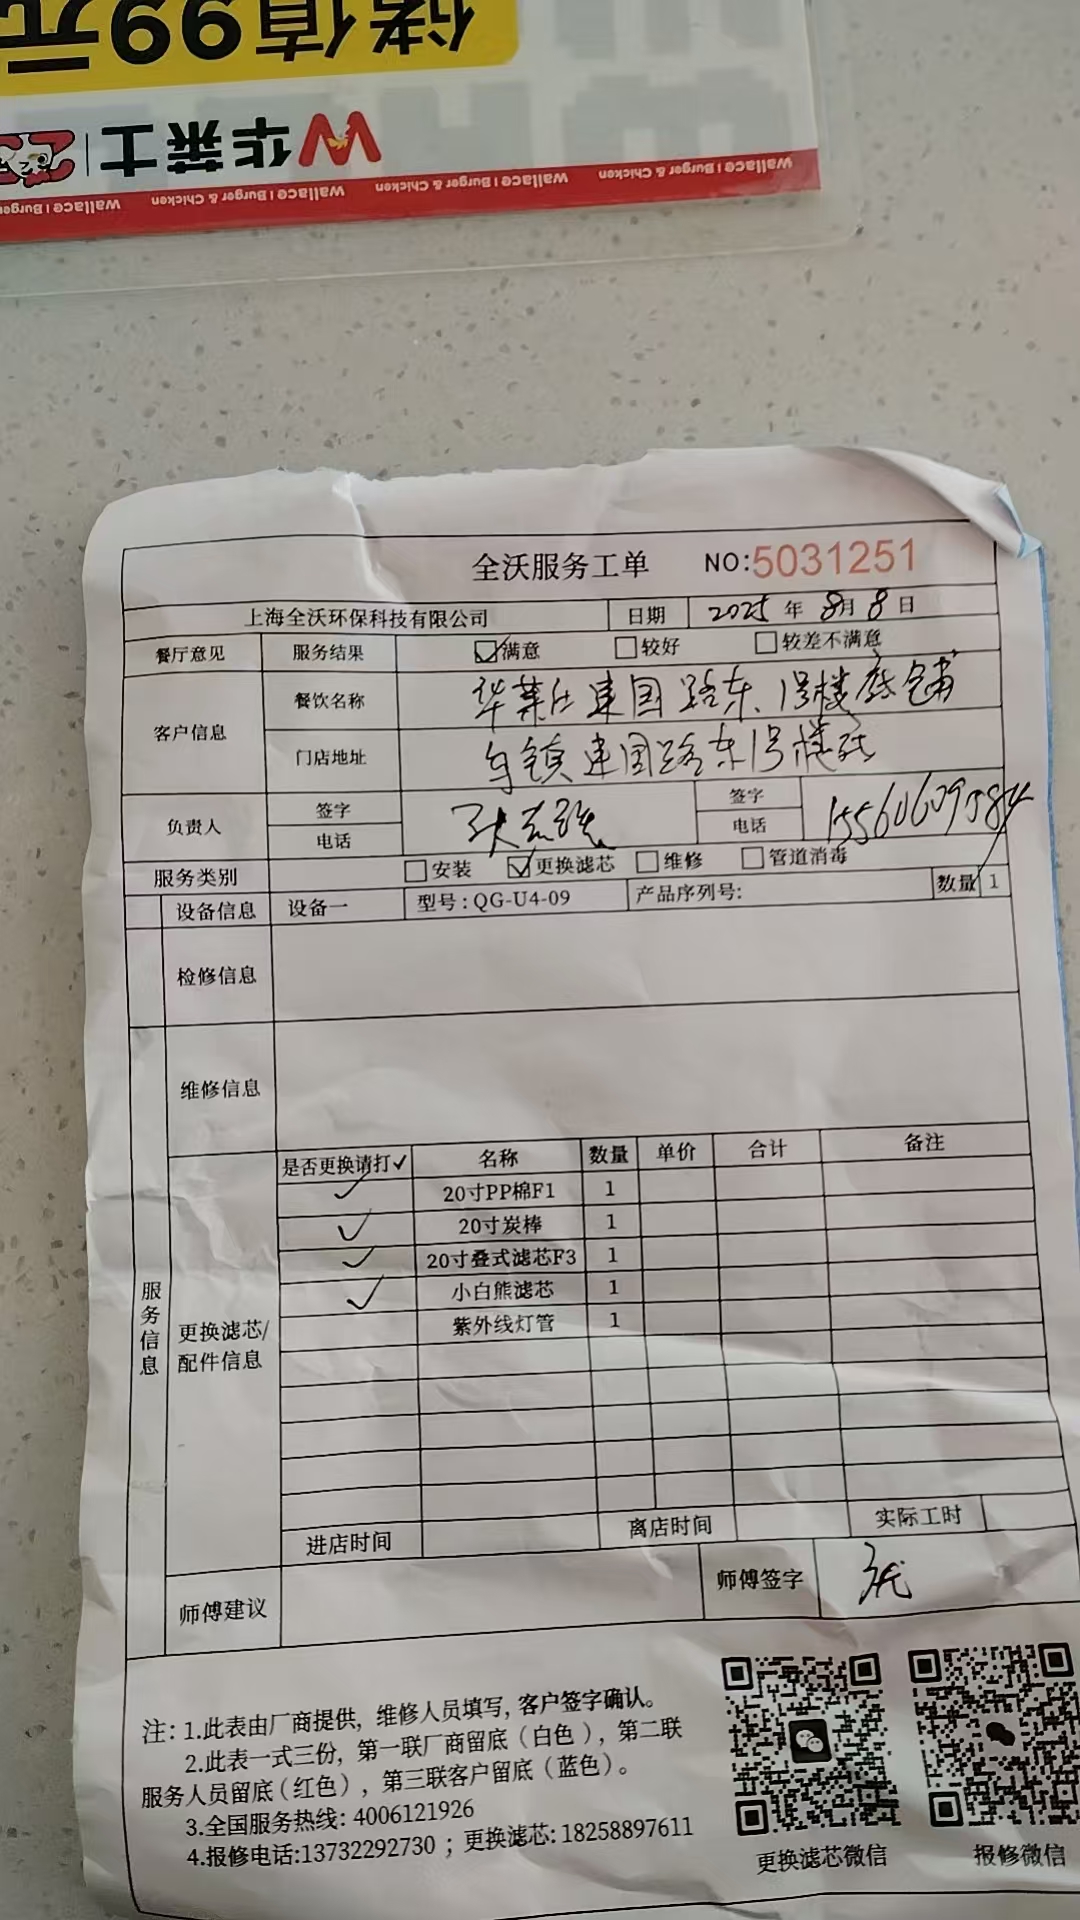 储值99元
华莱士
Wallace | Burger & Chicken Wallace | Burger & Chicken Wallace | Burger & Chicken Wallace | Burger
全沃服务工单 NO:5031251
上海全沃环保科技有限公司 日期 2025年8月8日
餐厅意见 服务结果 ☑满意 □较好 □较差不满意
客户信息 餐饮名称 华莱仕建国路东1号楼底铺
门店地址 乌镇建国路东1号楼
负责人 签字 签字
电话 电话
服务类别 □安装 ☑更换滤芯 □维修 □管道消毒
设备信息 设备一 型号:QG-U4-09 产品序列号: 数量 1
检修信息
维修信息
服务信息
更换滤芯/配件信息
是否更换请打✓ 名称 数量 单价 合计 备注
✓ 20寸PP棉F1 1
✓ 20寸炭棒 1
✓ 20寸叠式滤芯F3 1
✓ 小白熊滤芯 1
紫外线灯管 1
进店时间 离店时间 实际工时
师傅建议 师傅签字
注：1.此表由厂商提供, 维修人员填写, 客户签字确认。
2.此表一式三份, 第一联厂商留底（白色）, 第二联
服务人员留底（红色）, 第三联客户留底（蓝色）。
3.全国服务热线: 4006121926
4.报修电话:13732292730 ; 更换滤芯: 18258897611
更换滤芯微信 报修微信